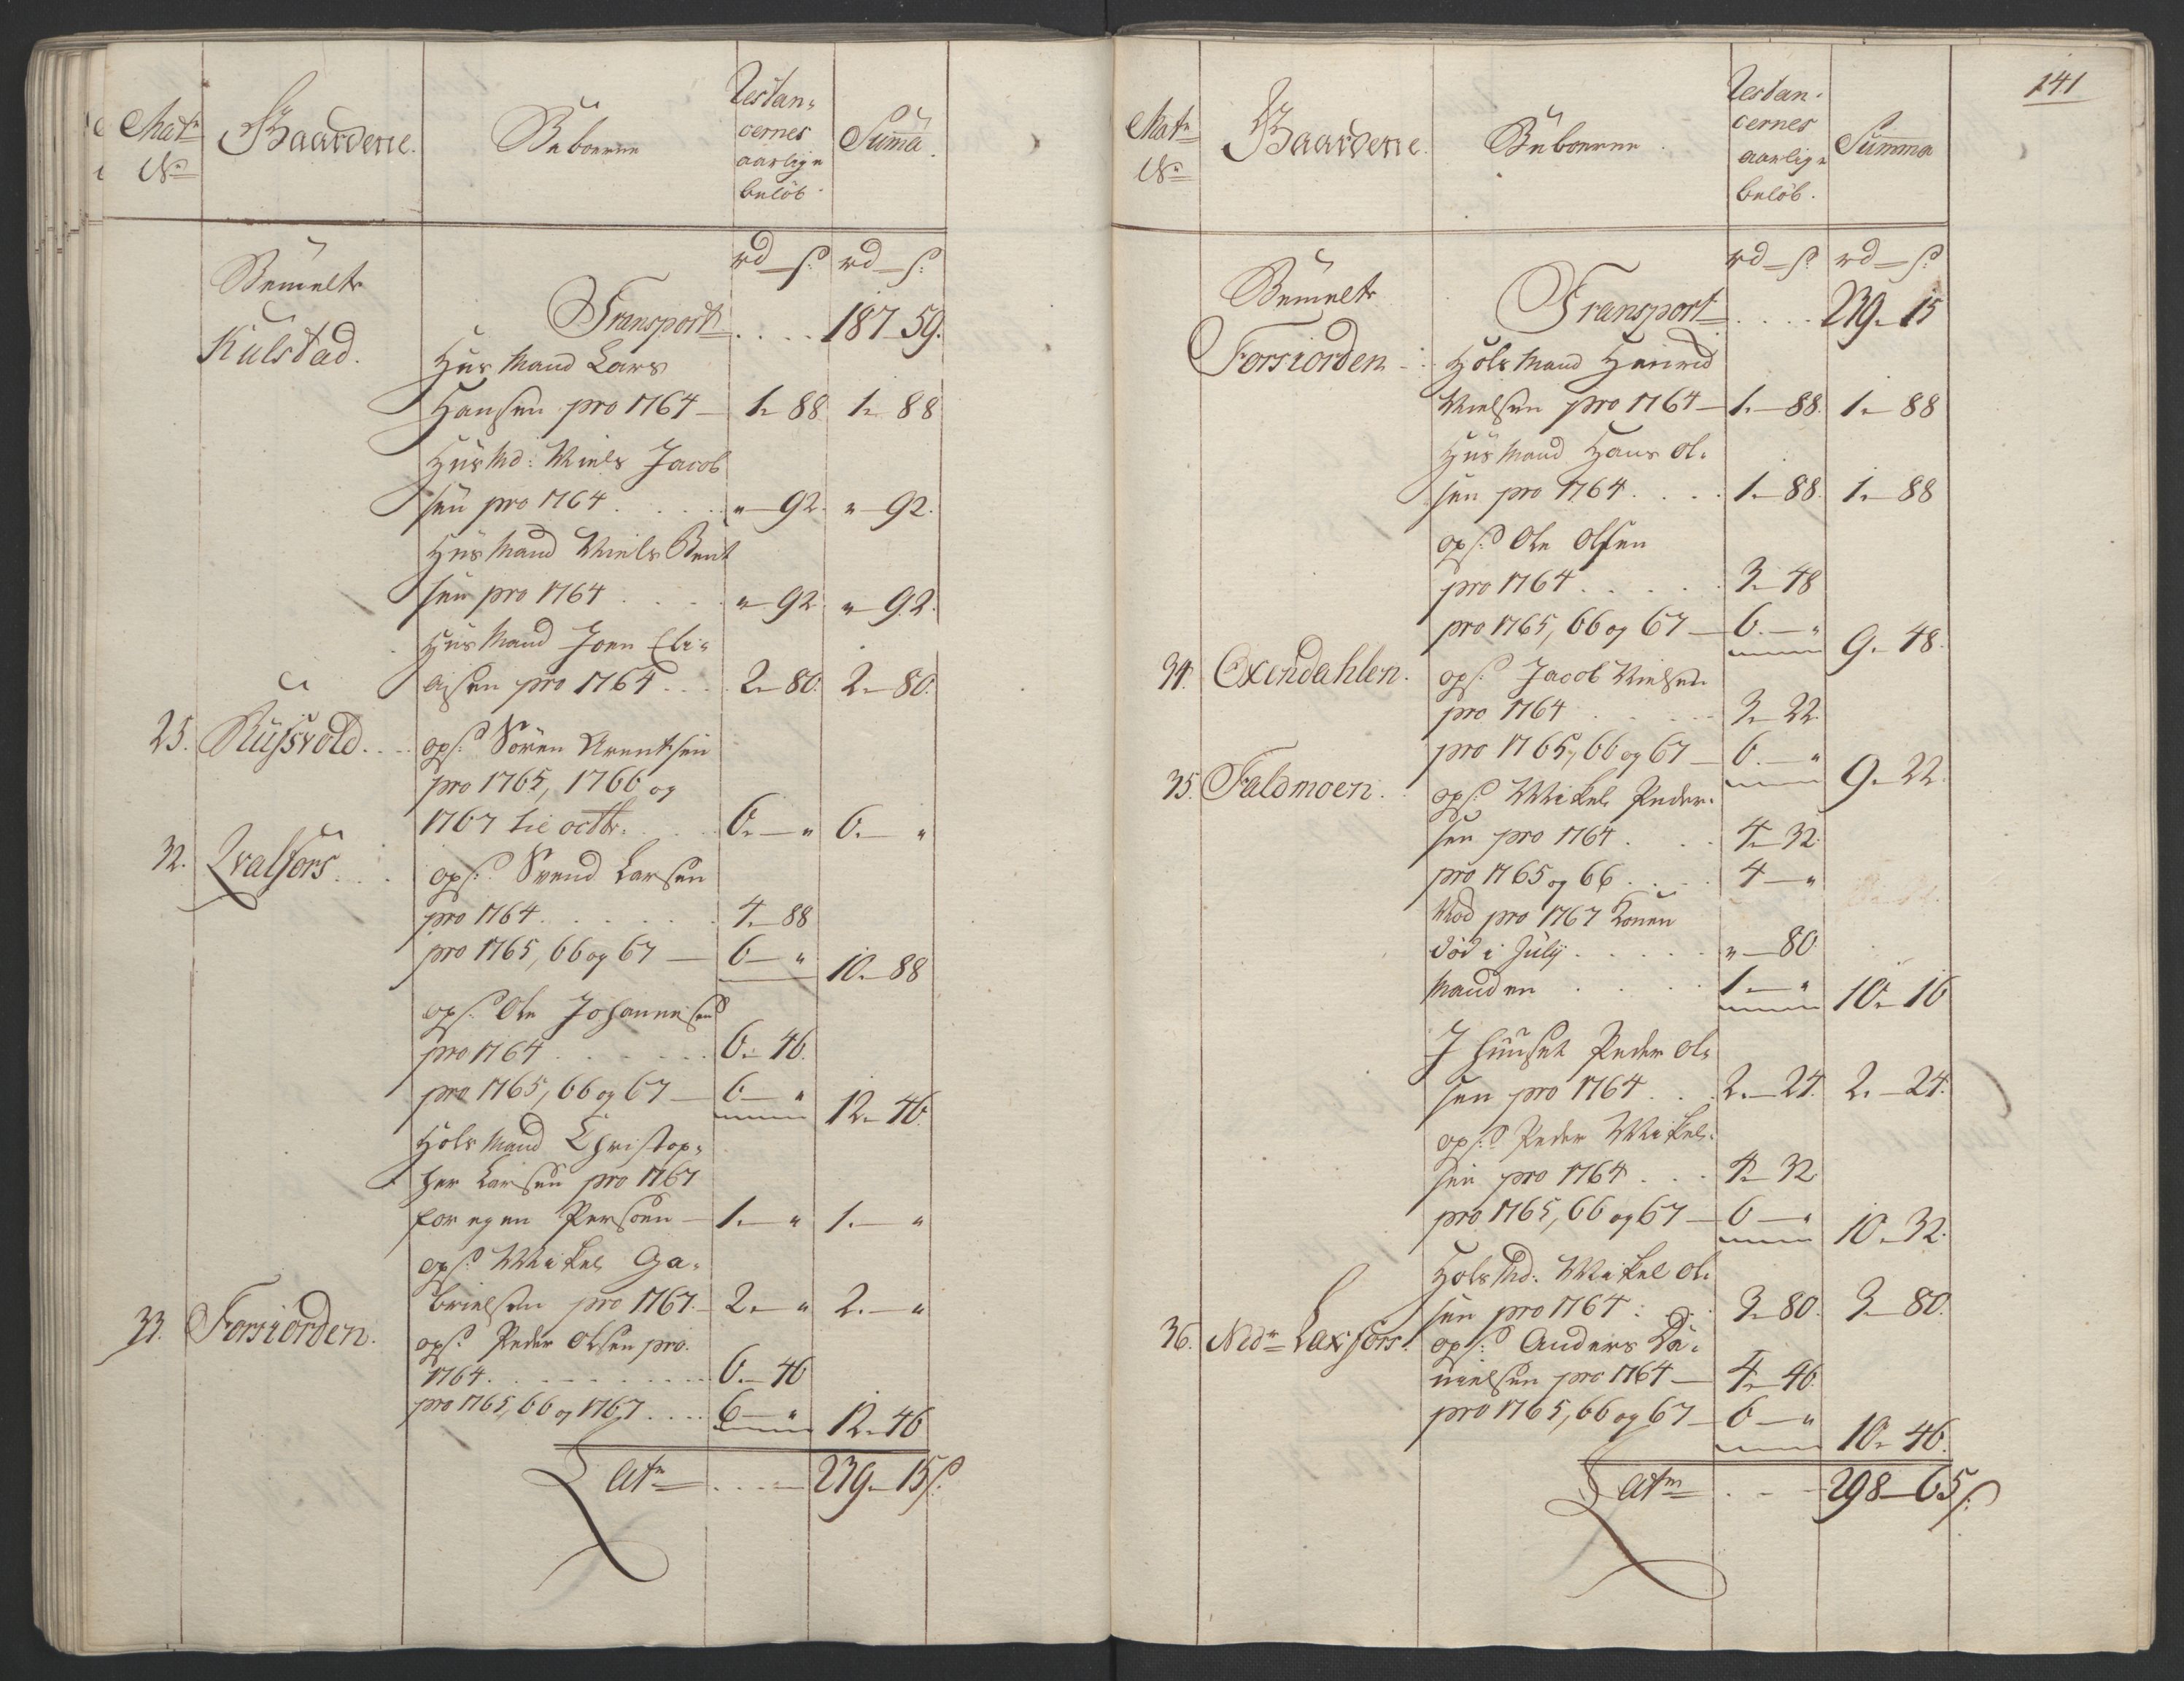 Matr
No
Gaardene.
Beboerne
Restan-
cernes
aarlige
beløb.
Summa.
rd – s:
rd – s:
Bemelte
Transport . . . . 187 – 59.
Kulstad.
Huus Mand Lars
Hansen pro 1764 – 1 – 88. 1 – 88
Huusmd: Niels Jacob
sen pro 1764 . . . . . " – 92. " – 92.
Huus Mand Niels Bent
sen pro 1764 . . . . " – 92 " – 92.
Huus Mand Joen Eli-
asen pro 1764 . . . 2 – 80. 2 – 80.
25. Rüssvold . . . ops: Søren Arentsen
pro 1765, 1766 og
1767 til octbr. . . . 6. – " 6. – "
32. Qvalfors. . . ops: Svend Larsen
pro 1764. . . . . . . 4 – 88
pro 1765, 66 og 67 – 6 – " 10. – 88
ops: Ole Johannesen
pro 1764 . . . . . . 6. – 46.
pro 1765, 66 og 67 – 6 – " 12 – 46.
Hols Mand Christop-
her Larsen pro 1767
for egen Persoen – 1. – " 1. – "
ops: Mikel Ga-
brielsen pro 1767. – 2. – " 2. – "
33. Forsiorden. ops: Peder Olsen pro.
1764. . . . . . . . . 6. – 46
pro 1765, 66 og 1767 . . . . 6 – " 12 – 46
Latr . . . – 239 – 15 s:
141
Matr
No
Gaardene.
Beboerne.
Restan-
cernes
aarlige
beløb.
Summa
rd – s:
rd – s:
Bemelte
Transport . . . . 239 – 15
Forsiorden . . Hols Mand Henrid
Nielsen pro 1764 – 1. – 88. 1. – 88
Huus Mand Hans Ol-
sen pro 1764. . . . 1. – 88. 1. – 88
ops: Ole Olsen
pro 1764 . . . . . . 3 – 48
pro 1765, 66 og 67 – 6. – " 9. – 48.
34. Oxendahlen. ops: Jacob Nielsen
pro 1764 . . . . . . 3 – 22.
pro 1765, 66 og 67 – 6. – " 9. – 22.
35. Faldmoen. . ops: Mikel Peder-
sen pro 1764 . . . 4 – 32.
pro 1765 og 66 . . . . 4 – "
Mod pro 1767 Konen
død i July . . . . . . " – 80.
Manden . . . . 1. – " 10 – 16
I huuset Peder Ol-
sen pro 1764 . . . 2. – 24. 2. – 24.
ops: Peder Mikel-
sen pro 1764 . . . 4 – 32.
pro 1765, 66 og 67 – 6 – " 10 – 32.
Hols Md: Mikel Ol-
sen pro 1764 : . . . 3 – 80. 3 – 80.
36. Nedr Laxfors. ops: Anders Da-
nielsen pro 1764 – 4 – 46.
pro 1765, 66 og 67 – 6 – " 10 – 46.
Latm . . – 298 – 65 s: